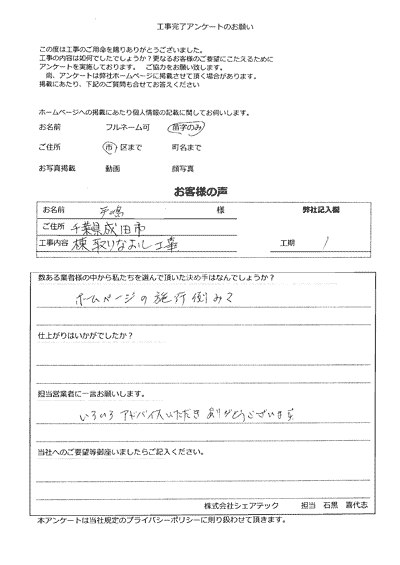 工事完了アンケートのお願い
この度は工事のご用命を賜りありがとうございました。
工事の内容は如何でしたでしょうか？更なるお客様のご要望にこたえるために
アンケートを実施しております。　ご協力をお願い致します。
尚、アンケートは弊社ホームページに掲載させて頂く場合があります。
掲載にあたり、下記のご質問も合せてお答えください
ホームページへの掲載にあたり個人情報の記載に関してお伺いします。
お名前　フルネーム可　苗字のみ
ご住所　市　区まで　町名まで
お写真掲載　動画　顔写真
お客様の声
お名前　様　弊社記入欄
ご住所　千葉県成田市
工事内容　棟取りなおし工事　工期
数ある業者様の中から私たちを選んで頂いた決め手はなんでしょうか？
ホームページの施行例みて
仕上がりはいかがでしたか？
担当営業者に一言お願いします。
いろいろアドバイスいただきありがとうございます
当社へのご要望等御座いましたらご記入ください。
株式会社シェアテック　担当　石黒　喜代志
本アンケートは当社規定のプライバシーポリシーに則り扱わせて頂きます。